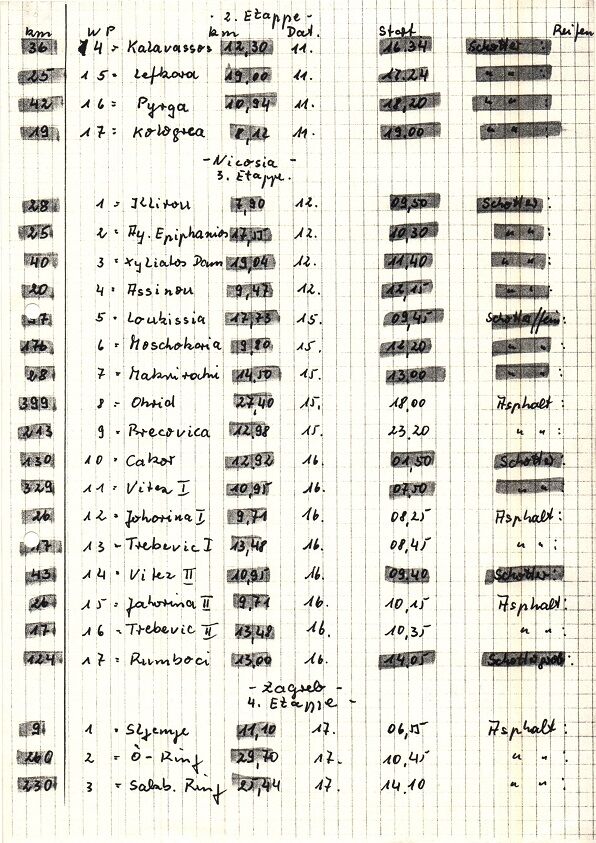 - 2. Etappe -
km WP km Dat. Start Reifen
36 14 = Kalavassos 12,30 11. 16.34 Schotter :
25 15 = Lefkara 19,00 11. 17.24 " " :
42 16 = Pyrga 10,94 11. 18,20 " " :
19 17 = Kologrea 8,12 11. 19.00 " " :
- Nicosia -
3. Etappe.
28 1 = Klirou 7,90 12. 09,50 Schotter :
25 2 = Ay. Epiphanios 17,55 12. 10,30 " " :
40 3 = Xyliatos Dam 19,04 12. 11,40 " " :
20 4 = Assinou 9,47 12. 12,15 " " :
5 = Loutissia 17,73 15. 09,45 Schotter/fein :
176 6 = Moschokaria 9,80 15. 15. " " :
28 7 = 14,50 15. 13.00 " " :
399 8 = Ohrid 27,40 15. 18,00 Asphalt :
213 9 = Brecovica 12,98 15. 23.20 " " :
130 10 = Cakor 12,92 16. 01,50 Schotter :
329 11 = Vitez I 10,95 16. 07,50 " "
26 12 = Jahorina I 9,71 16. 08,25 Asphalt :
17 13 = Trebevic I 13,48 16. 08,45 " " :
43 14 = Vitez II 10,95 16. 09,40 Schotter :
26 15 = Jahorina II 9,71 16. 10,15 Asphalt :
17 16 = Trebevic II 13,48 16. 10,35 " " :
124 17 = Rumboci 13,00 16. 14,05 Schotter/grob :
- Zagreb -
4. Etappe -
9 1 = Sljemje 11,10 17. 06,55 Asphalt :
260 2 = Ö-Ring 29,70 17. 10,45 " " :
230 3 = Salzb. Ring 25,44 17. 14.10 " " :